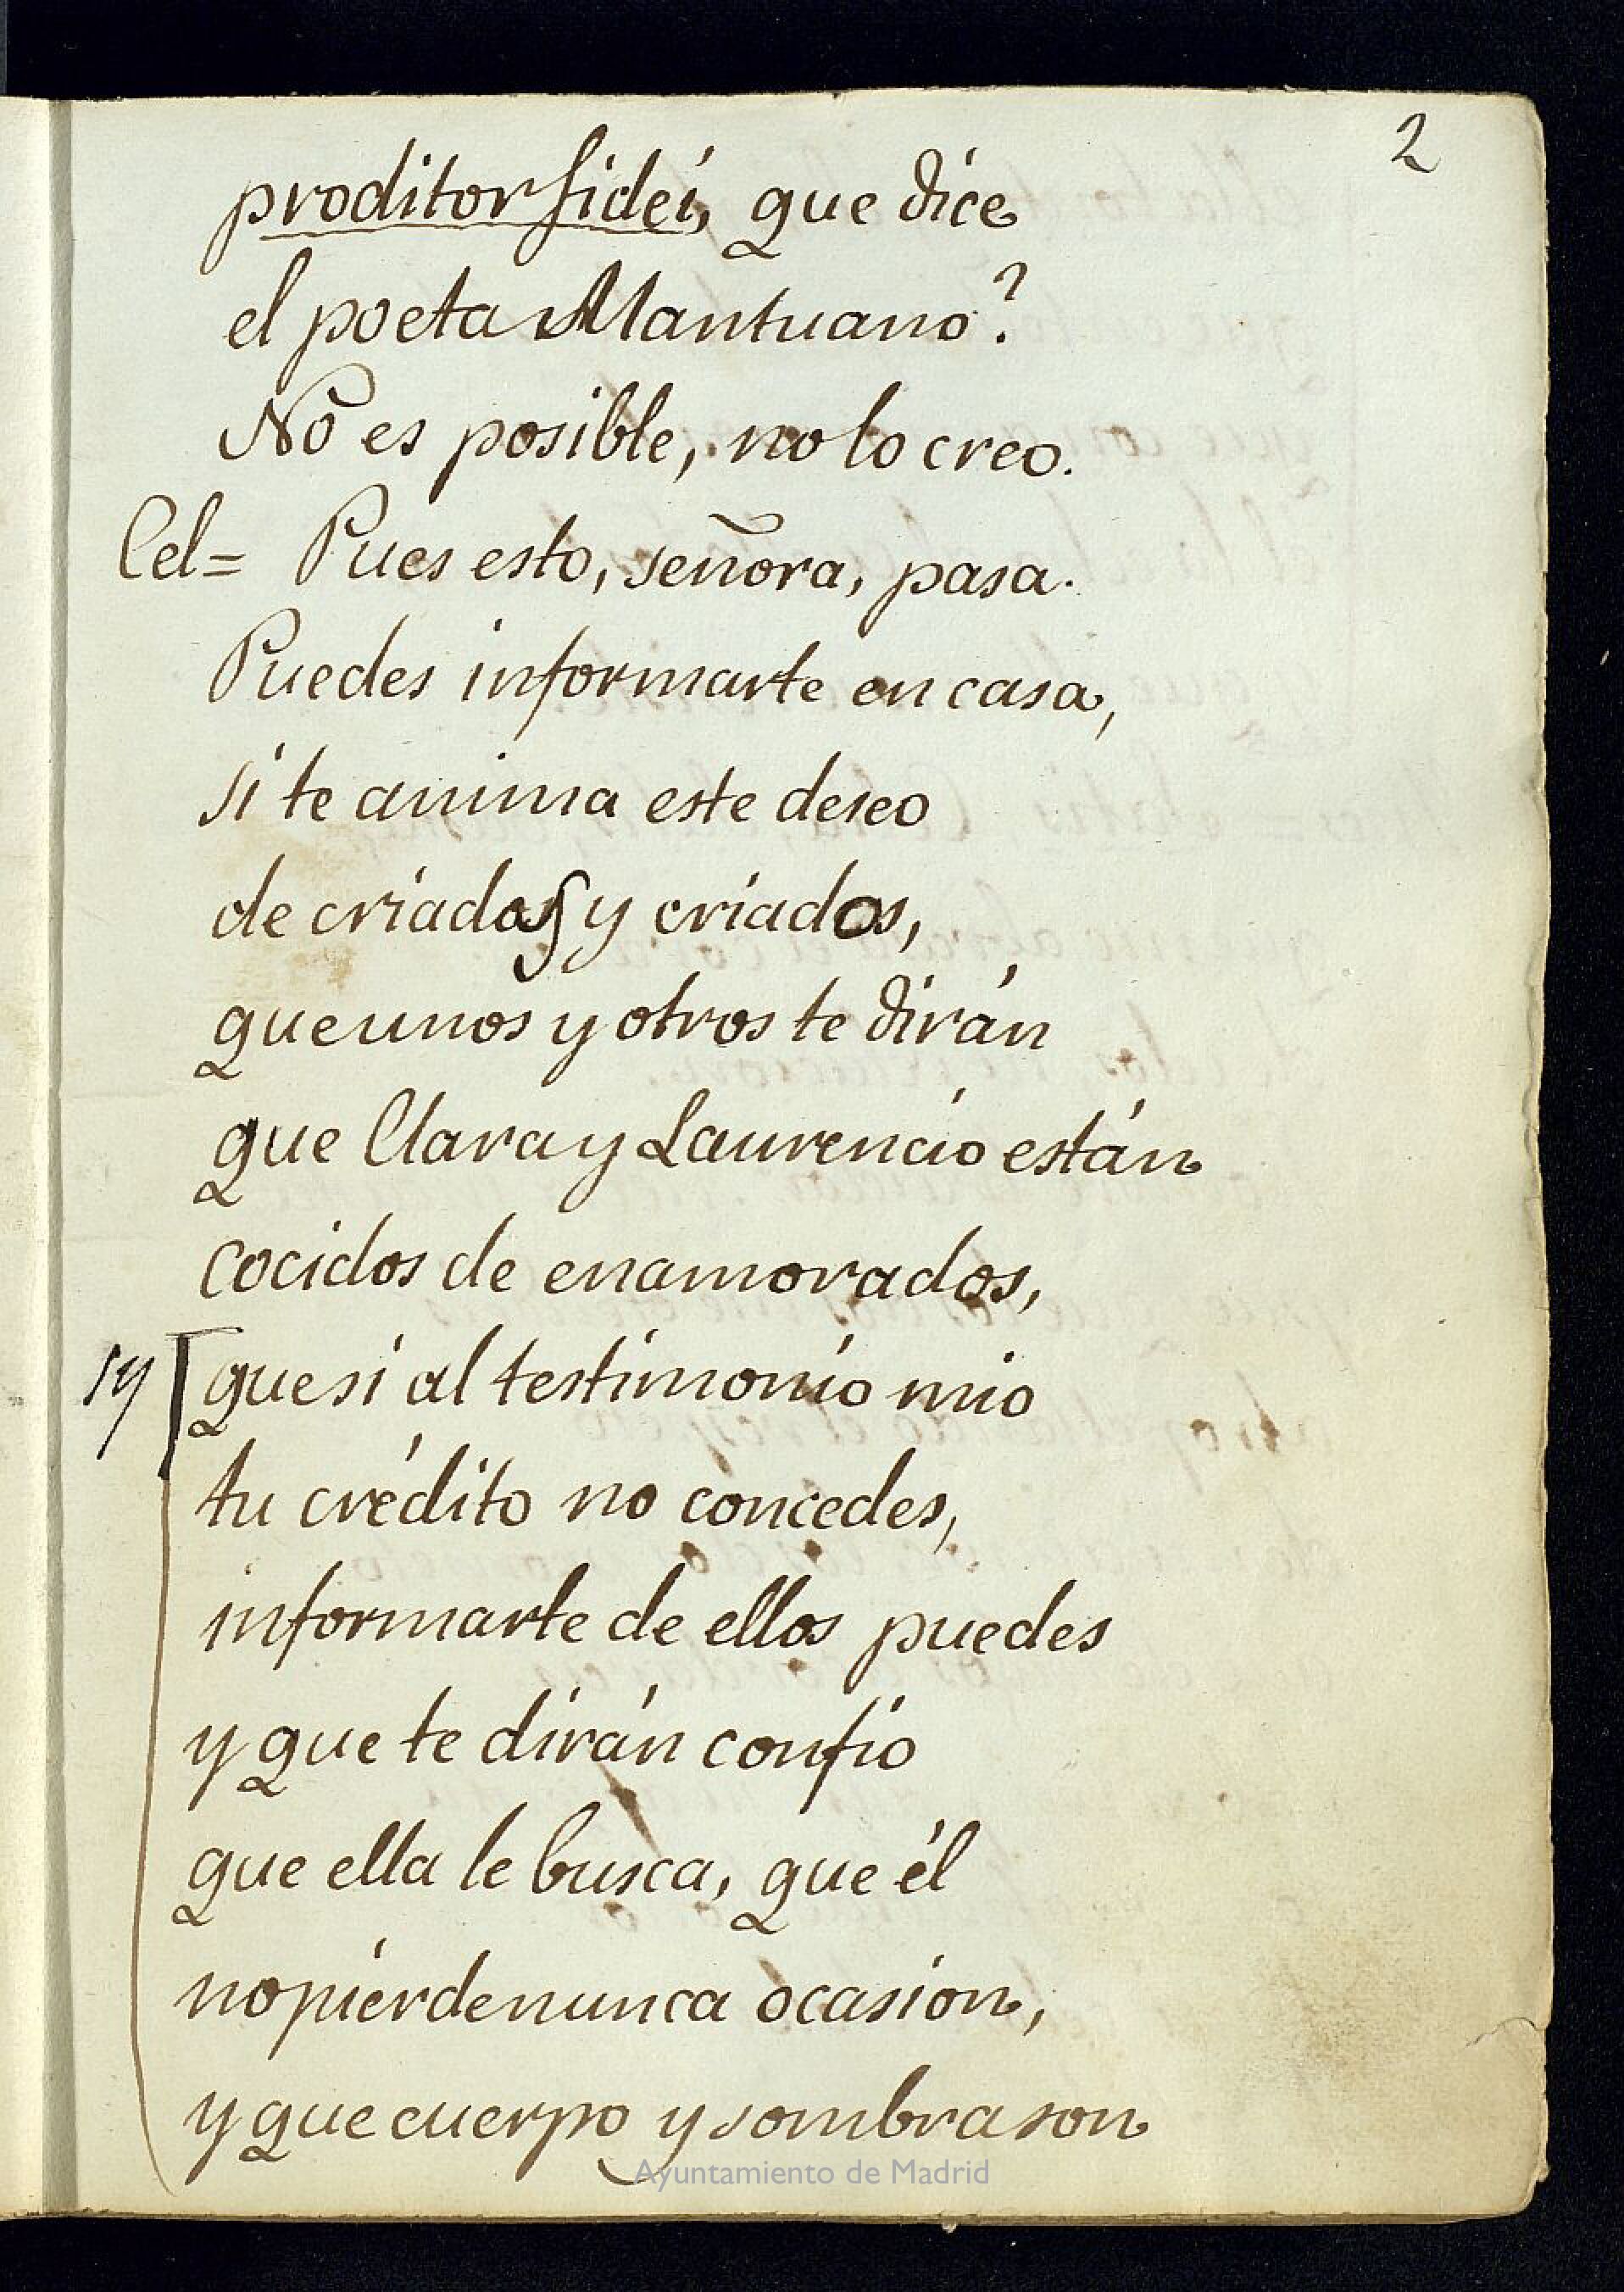 2
proditor fidei, que dice
el poeta Mantuano?
No es posible, no lo creo.
Cel= Pues esto, señora, pasa.
Puedes informarte en casa,
si te anima este deseo
de criadas y criados,
que unos y otros te dirán
que Clara y Laurencio están
cocidos de enamorados,
que si al testimonio mio
tu crédito no concedes,
informarte de ellos puedes
y que te dirán confio
que ella le busca, que él
no pierde nunca ocasion,
y que cuerpo y sombra son
Ayuntamiento de Madrid